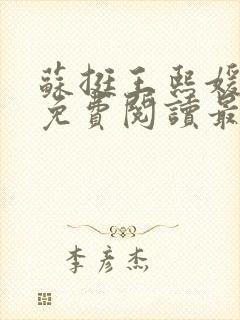 蘇挺王熙媛
免費閱讀最
李彦杰